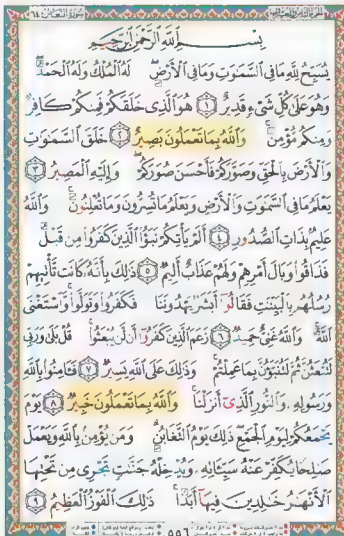 سورة التغابن ٦٤
بسم الله الرحمن الرحيم
يُسَبِّحُ لِلَّهِ مَا فِي السَّمَٰوَٰتِ وَمَا فِي الْأَرْضِ ۖ لَهُ الْمُلْكُ وَلَهُ الْحَمْدُ ۖ
وَهُوَ عَلَىٰ كُلِّ شَيْءٍ قَدِيرٌ ﴿١﴾ هُوَ الَّذِي خَلَقَكُمْ فَمِنكُمْ كَافِرٌ
وَمِنكُم مُّؤْمِنٌ ۚ وَاللَّهُ بِمَا تَعْمَلُونَ بَصِيرٌ ﴿٢﴾ خَلَقَ السَّمَٰوَٰتِ
وَالْأَرْضَ بِالْحَقِّ وَصَوَّرَكُمْ فَأَحْسَنَ صُوَرَكُمْ ۖ وَإِلَيْهِ الْمَصِيرُ ﴿٣﴾
يَعْلَمُ مَا فِي السَّمَٰوَٰتِ وَالْأَرْضِ وَيَعْلَمُ مَا تُسِرُّونَ وَمَا تُعْلِنُونَ ۚ وَاللَّهُ
عَلِيمٌ بِذَاتِ الصُّدُورِ ﴿٤﴾ أَلَمْ يَأْتِكُمْ نَبَؤُا الَّذِينَ كَفَرُوا مِن قَبْلُ
فَذَاقُوا وَبَالَ أَمْرِهِمْ وَلَهُمْ عَذَابٌ أَلِيمٌ ﴿٥﴾ ذَٰلِكَ بِأَنَّهُ كَانَت تَّأْتِيهِمْ
رُسُلُهُم بِالْبَيِّنَٰتِ فَقَالُوا أَبَشَرٌ يَهْدُونَنَا فَكَفَرُوا وَتَوَلَّوا ۚ وَّاسْتَغْنَى
اللَّهُ ۚ وَاللَّهُ غَنِيٌّ حَمِيدٌ ﴿٦﴾ زَعَمَ الَّذِينَ كَفَرُوا أَن لَّن يُبْعَثُوا ۚ قُلْ بَلَىٰ وَرَبِّي
لَتُبْعَثُنَّ ثُمَّ لَتُنَبَّؤُنَّ بِمَا عَمِلْتُمْ ۚ وَذَٰلِكَ عَلَى اللَّهِ يَسِيرٌ ﴿٧﴾ فَـَٔامِنُوا بِاللَّهِ
وَرَسُولِهِ وَالنُّورِ الَّذِي أَنزَلْنَا ۚ وَاللَّهُ بِمَا تَعْمَلُونَ خَبِيرٌ ﴿٨﴾ يَوْمَ
يَجْمَعُكُمْ لِيَوْمِ الْجَمْعِ ۖ ذَٰلِكَ يَوْمُ التَّغَابُنِ ۗ وَمَن يُؤْمِن بِاللَّهِ وَيَعْمَلْ
صَٰلِحًا يُكَفِّرْ عَنْهُ سَيِّـَٔاتِهِ وَيُدْخِلْهُ جَنَّٰتٍ تَجْرِي مِن تَحْتِهَا
الْأَنْهَٰرُ خَٰلِدِينَ فِيهَا أَبَدًا ۚ ذَٰلِكَ الْفَوْزُ الْعَظِيمُ ﴿٩﴾
٥٥٦